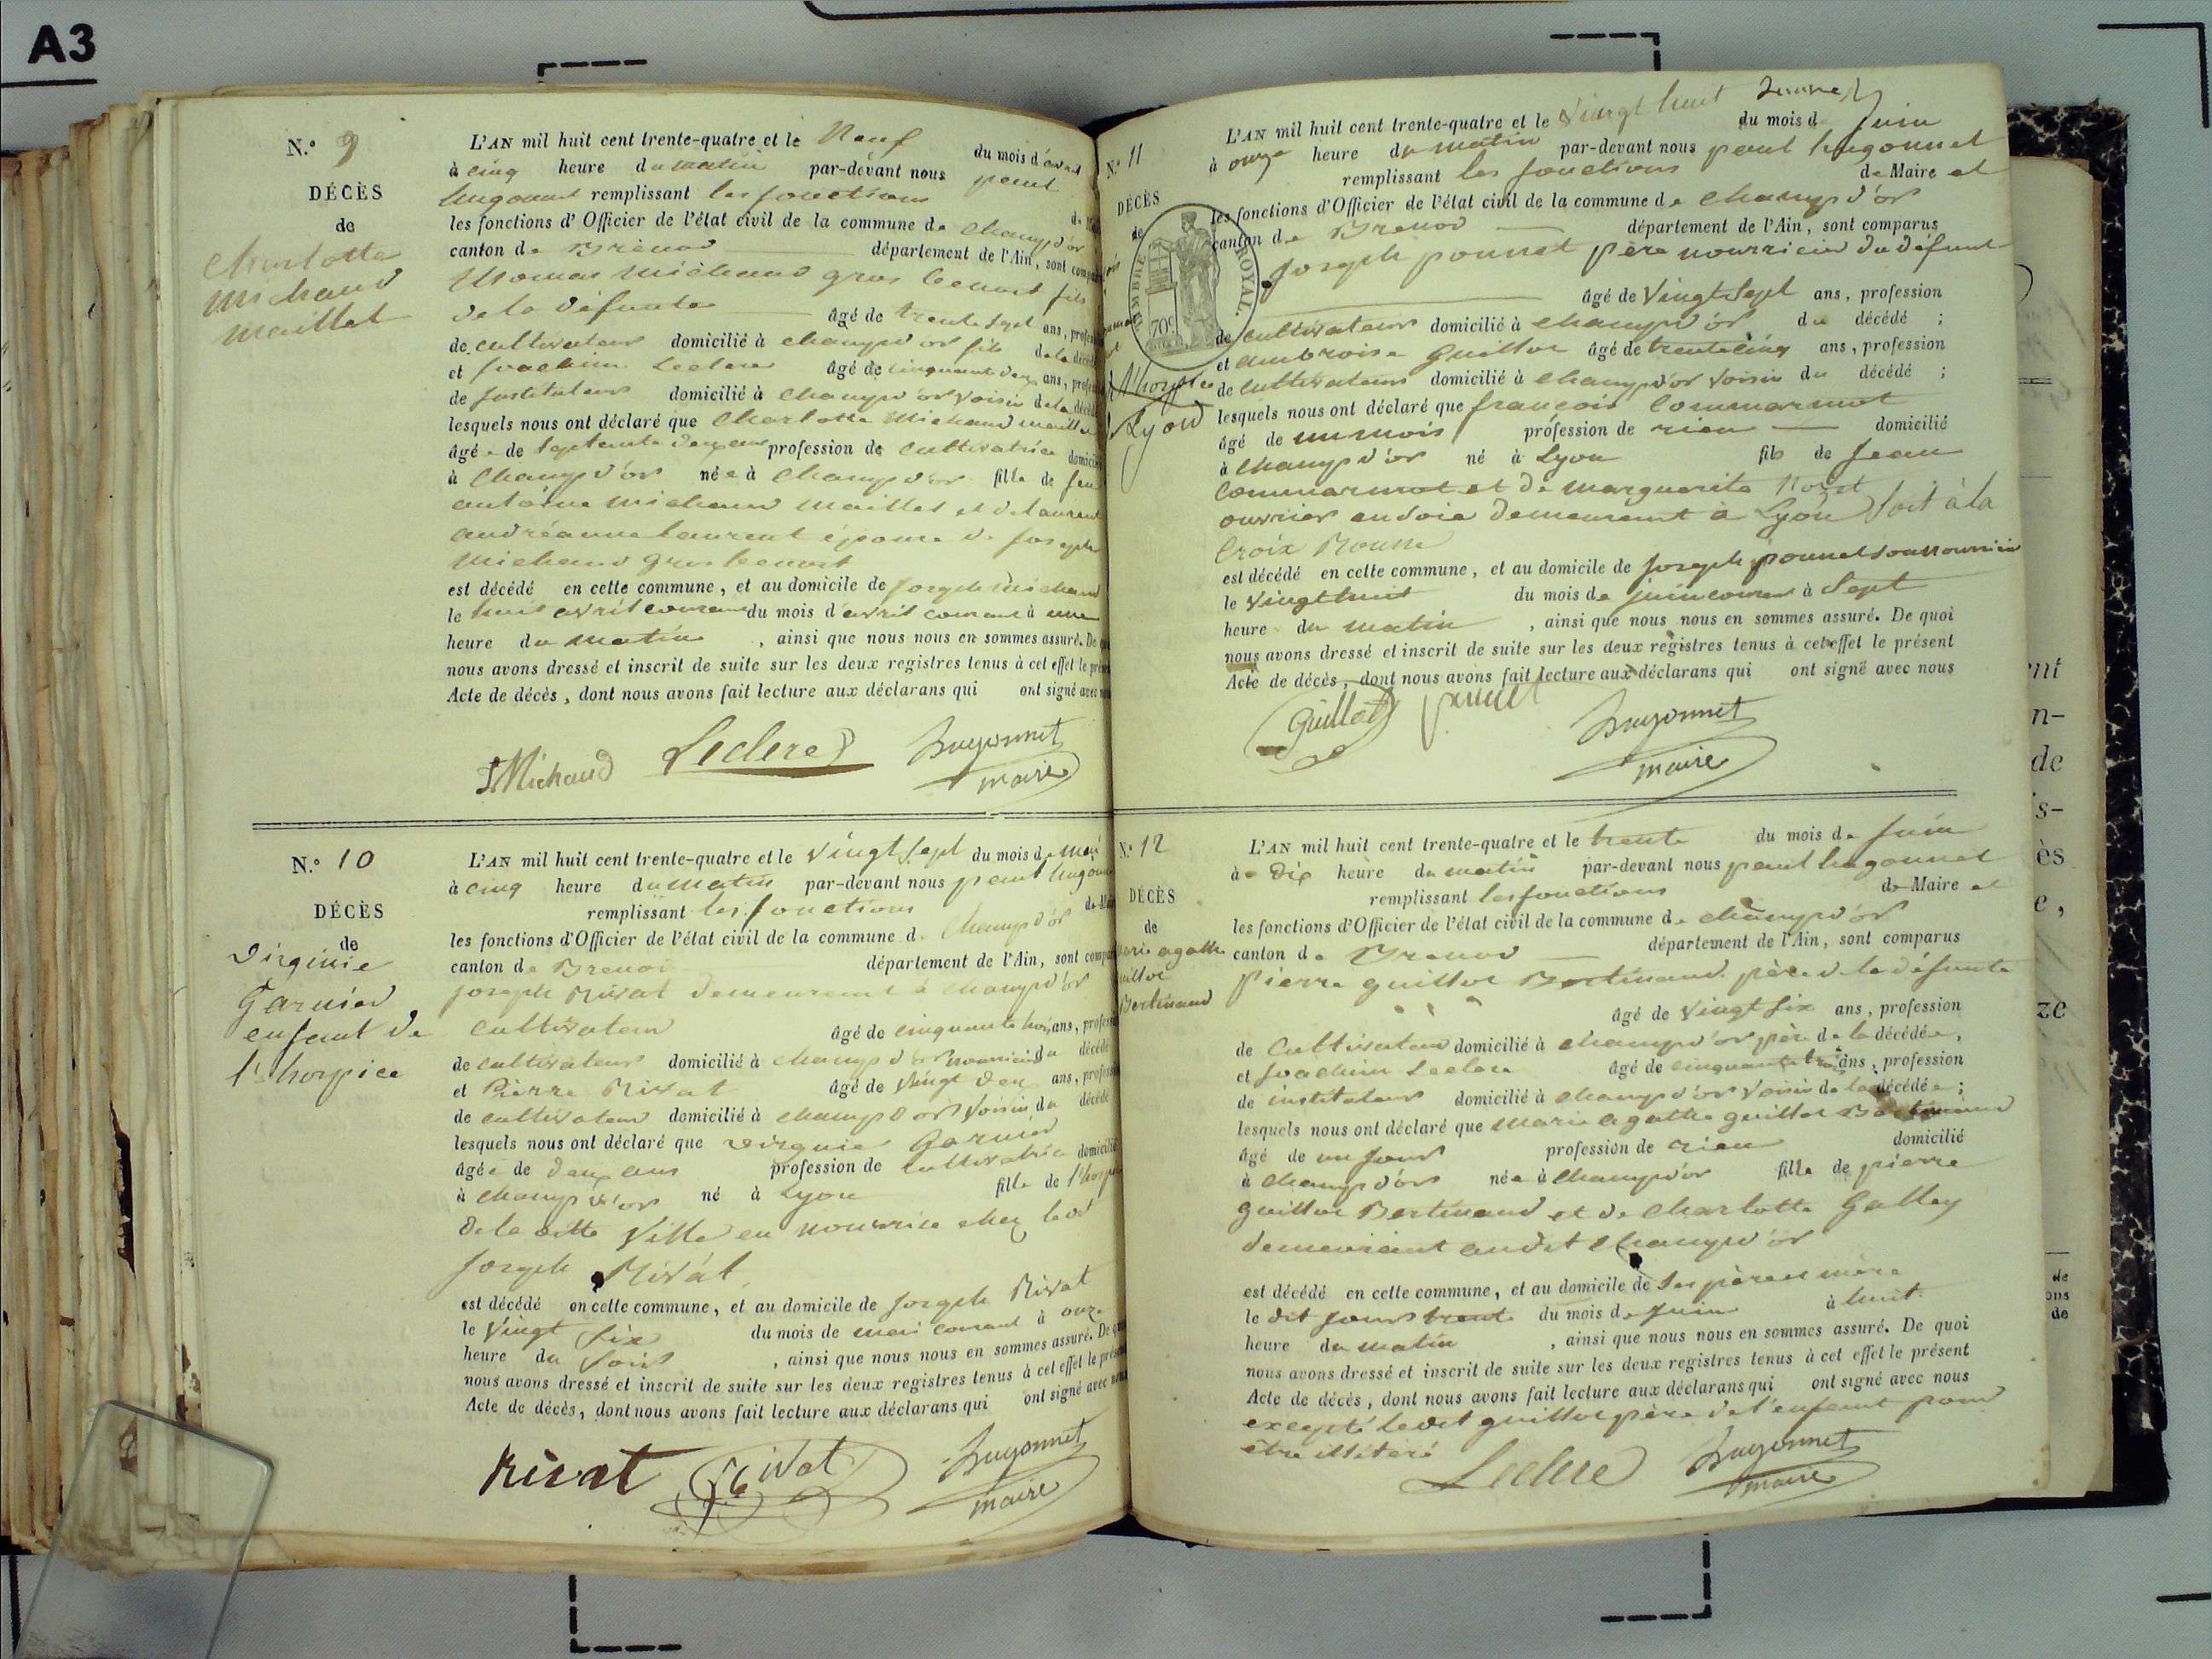 A3
N.° 9
DÉCÈS
de
Charlotte
Michaud
Maillet
L'AN mil huit cent trente-quatre et le Neuf du mois d'avril
à cinq heure du matin par-devant nous paul
hugonnet remplissant les fonctions
les fonctions d'Officier de l'état civil de la commune de Champd'or
canton de Brenod département de l'Ain, sont
thomas Michaud gros benoit fils
de la défunte âgé de trente sept ans,
de cultivateur domicilié à champd'or fils de la
et Joachim Leclerc âgé de cinquante deux ans,
de Instituteur domicilié à Champd'or voisin de la
lesquels nous ont déclaré que Charlotte Michaud maillet
âgée de septante deux ans profession de cultivatrice
à Champd'or née à Champd'or fille de feu
antoine michaud maillet et de laurent
andréanne laurent épouse de Joseph
Michaud gros benoit
est décédé en cette commune, et au domicile de Joseph Michaud
le huit avril courant du mois d'avril courant à une
heure du matin, ainsi que nous nous en sommes assuré. De
nous avons dressé et inscrit de suite sur les deux registres tenus à cet effet le
Acte de décès, dont nous avons fait lecture aux déclarans qui ont signé avec
Michaud Leclerc hugonnet
maire
N.° 10
DÉCÈS
de
Virginie
Garnier
enfant de
l'hospice
L'AN mil huit cent trente-quatre et le vingt sept du mois de mai
à cinq heure du matin par-devant nous paul
remplissant les fonctions
les fonctions d'Officier de l'état civil de la commune de Champd'or
canton de Brenod département de l'Ain, sont
joseph Rivat demeurant à champd'or
cultivateur âgé de cinquante ans,
de cultivateur domicilié à champd'or nourricier du décédé
et Pierre Rivat âgé de vingt deux ans,
de cultivateur domicilié à champd'or voisin du décédé
lesquels nous ont déclaré que virginie Garnier
âgée de deux ans profession de cultivatrice
à champd'or né à Lyon fille de
de la ditte Ville en nourrice chez led
Joseph Rivat
est décédé en cette commune, et au domicile de Joseph Rivat
le Vingt Six du mois de mai courant à onze
heure du soir, ainsi que nous nous en sommes assuré. De
nous avons dressé et inscrit de suite sur les deux registres tenus à cet effet le
Acte de décès, dont nous avons fait lecture aux déclarans qui ont signé avec
Rivat Rivat hugonnet
maire
N.° 11
DÉCÈS
de
TIMBRE ROYAL.
70c
l'hospice
Lyon
L'AN mil huit cent trente-quatre et le Vingt huit du mois d juin
à onze heure du matin par-devant nous paul hugonnet
remplissant les fonctions de Maire et
les fonctions d'Officier de l'état civil de la commune de Champd'or
canton de Brenod département de l'Ain, sont comparus
Joseph ponnet père nourricier du défunt
âgé de vingt sept ans, profession
de cultivateur domicilié à champd'or du décédé ;
et ambroise Guillot âgé de trente cinq ans, profession
de cultivateur domicilié à champd'or voisin du décédé ;
lesquels nous ont déclaré que françois Commarmot
âgé de un mois profession de rien domicilié
à champd'or né à Lyon fils de Jean
Commarmot et de Marguerite
ouvrier en soie demeurant à Lyon soit à la
Croix Rousse
est décédé en cette commune, et au domicile de Joseph ponnet son nourricier
le vingt huit du mois de juin courant à Sept
heure du matin, ainsi que nous nous en sommes assuré. De quoi
nous avons dressé et inscrit de suite sur les deux registres tenus à cet effet le présent
Acte de décès, dont nous avons fait lecture aux déclarans qui ont signé avec nous
Guillot ponnet hugonnet
maire
N.° 12
DÉCÈS
de
agathe
guillot
Bertinand
L'AN mil huit cent trente-quatre et le trente du mois de Juin
à Dix heure du matin par-devant nous paul hugonnet
remplissant les fonctions de Maire et
les fonctions d'Officier de l'état civil de la commune de champd'or
canton de Brenod département de l'Ain, sont comparus
pierre guillot Bertinand père de la défunte
âgé de vingt six ans, profession
de Cultivateur domicilié à champd'or père de la décédée,
et Joachim Leclerc âgé de cinquante trois ans, profession
de instituteur domicilié à champd'or voisin de la décédée ;
lesquels nous ont déclaré que marie agathe guillot Bertinand
âgé de un jour profession de rien domicilié
à champd'or née à Champd'or fille de pierre
guillot Bertinand et de Charlotte Galley
demeurant audit champd'or
est décédé en cette commune, et au domicile de ses père et mère
le dit jour trente du mois de juin à huit
heure du matin, ainsi que nous nous en sommes assuré. De quoi
nous avons dressé et inscrit de suite sur les deux registres tenus à cet effet le présent
Acte de décès, dont nous avons fait lecture aux déclarans qui ont signé avec nous
excepté ledit guillot père de l'enfant pour
être illétéré
Leclerc hugonnet
maire